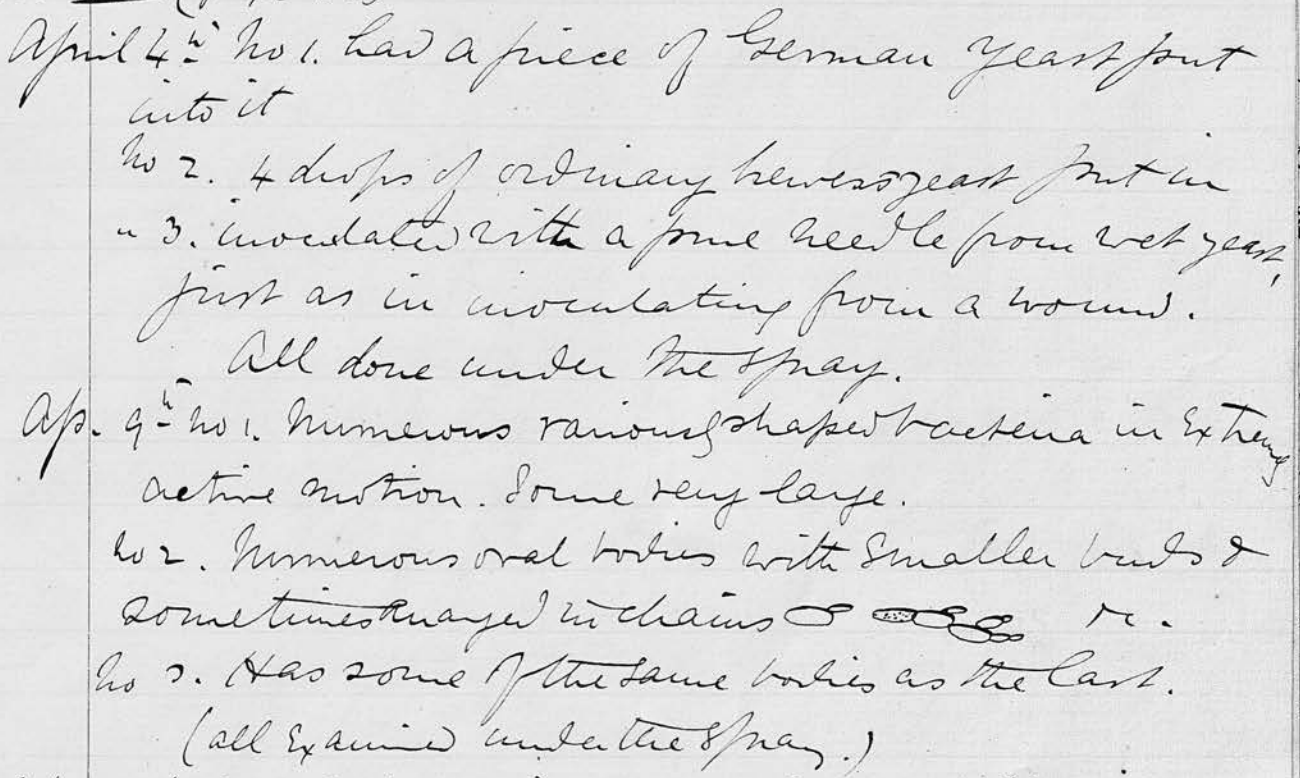 April 4th No 1. had a piece of German Yeast put
into it
No 2. 4 drops of ordinary brewers yeast put in
" 3. inoculated with a pure needle from wet yeast,
just as in inoculating from a wound.
All done under the spray.
Ap. 9th No 1. Numerous variously shaped bacteria in Extremely
active motion. Some very large.
No 2. Numerous oval bodies with smaller buds &
sometimes arranged in chains &c.
No 3. Has some of the same bodies as the last.
(all Examined under the spray.)